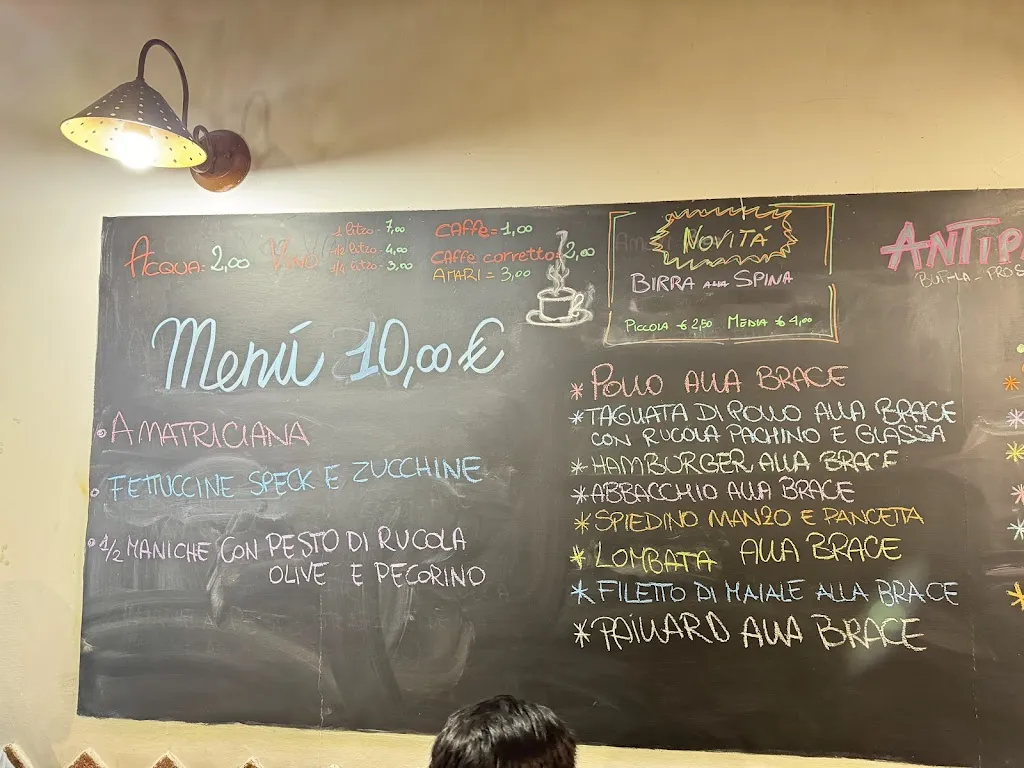 ACQUA: 2,00
VINO
1 LITRO: 7,00
1/2 LITRO: 4,00
1/4 LITRO: 3,00
CAFFÈ = 1,00
CAFFÈ CORRETTO = 2,00
AMARI = 3,00
NOVITÁ
BIRRA ALLA SPINA
PICCOLA € 2,50 MEDIA € 4,00
ANTIP
Menú 10,00 €
• AMATRICIANA
• FETTUCCINE SPECK E ZUCCHINE
• 1/2 MANICHE CON PESTO DI RUCOLA
OLIVE E PECORINO
* POLLO ALLA BRACE
* TAGLIATA DI POLLO ALLA BRACE
CON RUCOLA PACHINO E GLASSA
* HAMBURGER ALLA BRACE
* ABBACCHIO ALLA BRACE
* SPIEDINO MANZO E PANCETTA
* LOMBATA ALLA BRACE
* FILETTO DI MAIALE ALLA BRACE
* PAILLARD ALLA BRACE